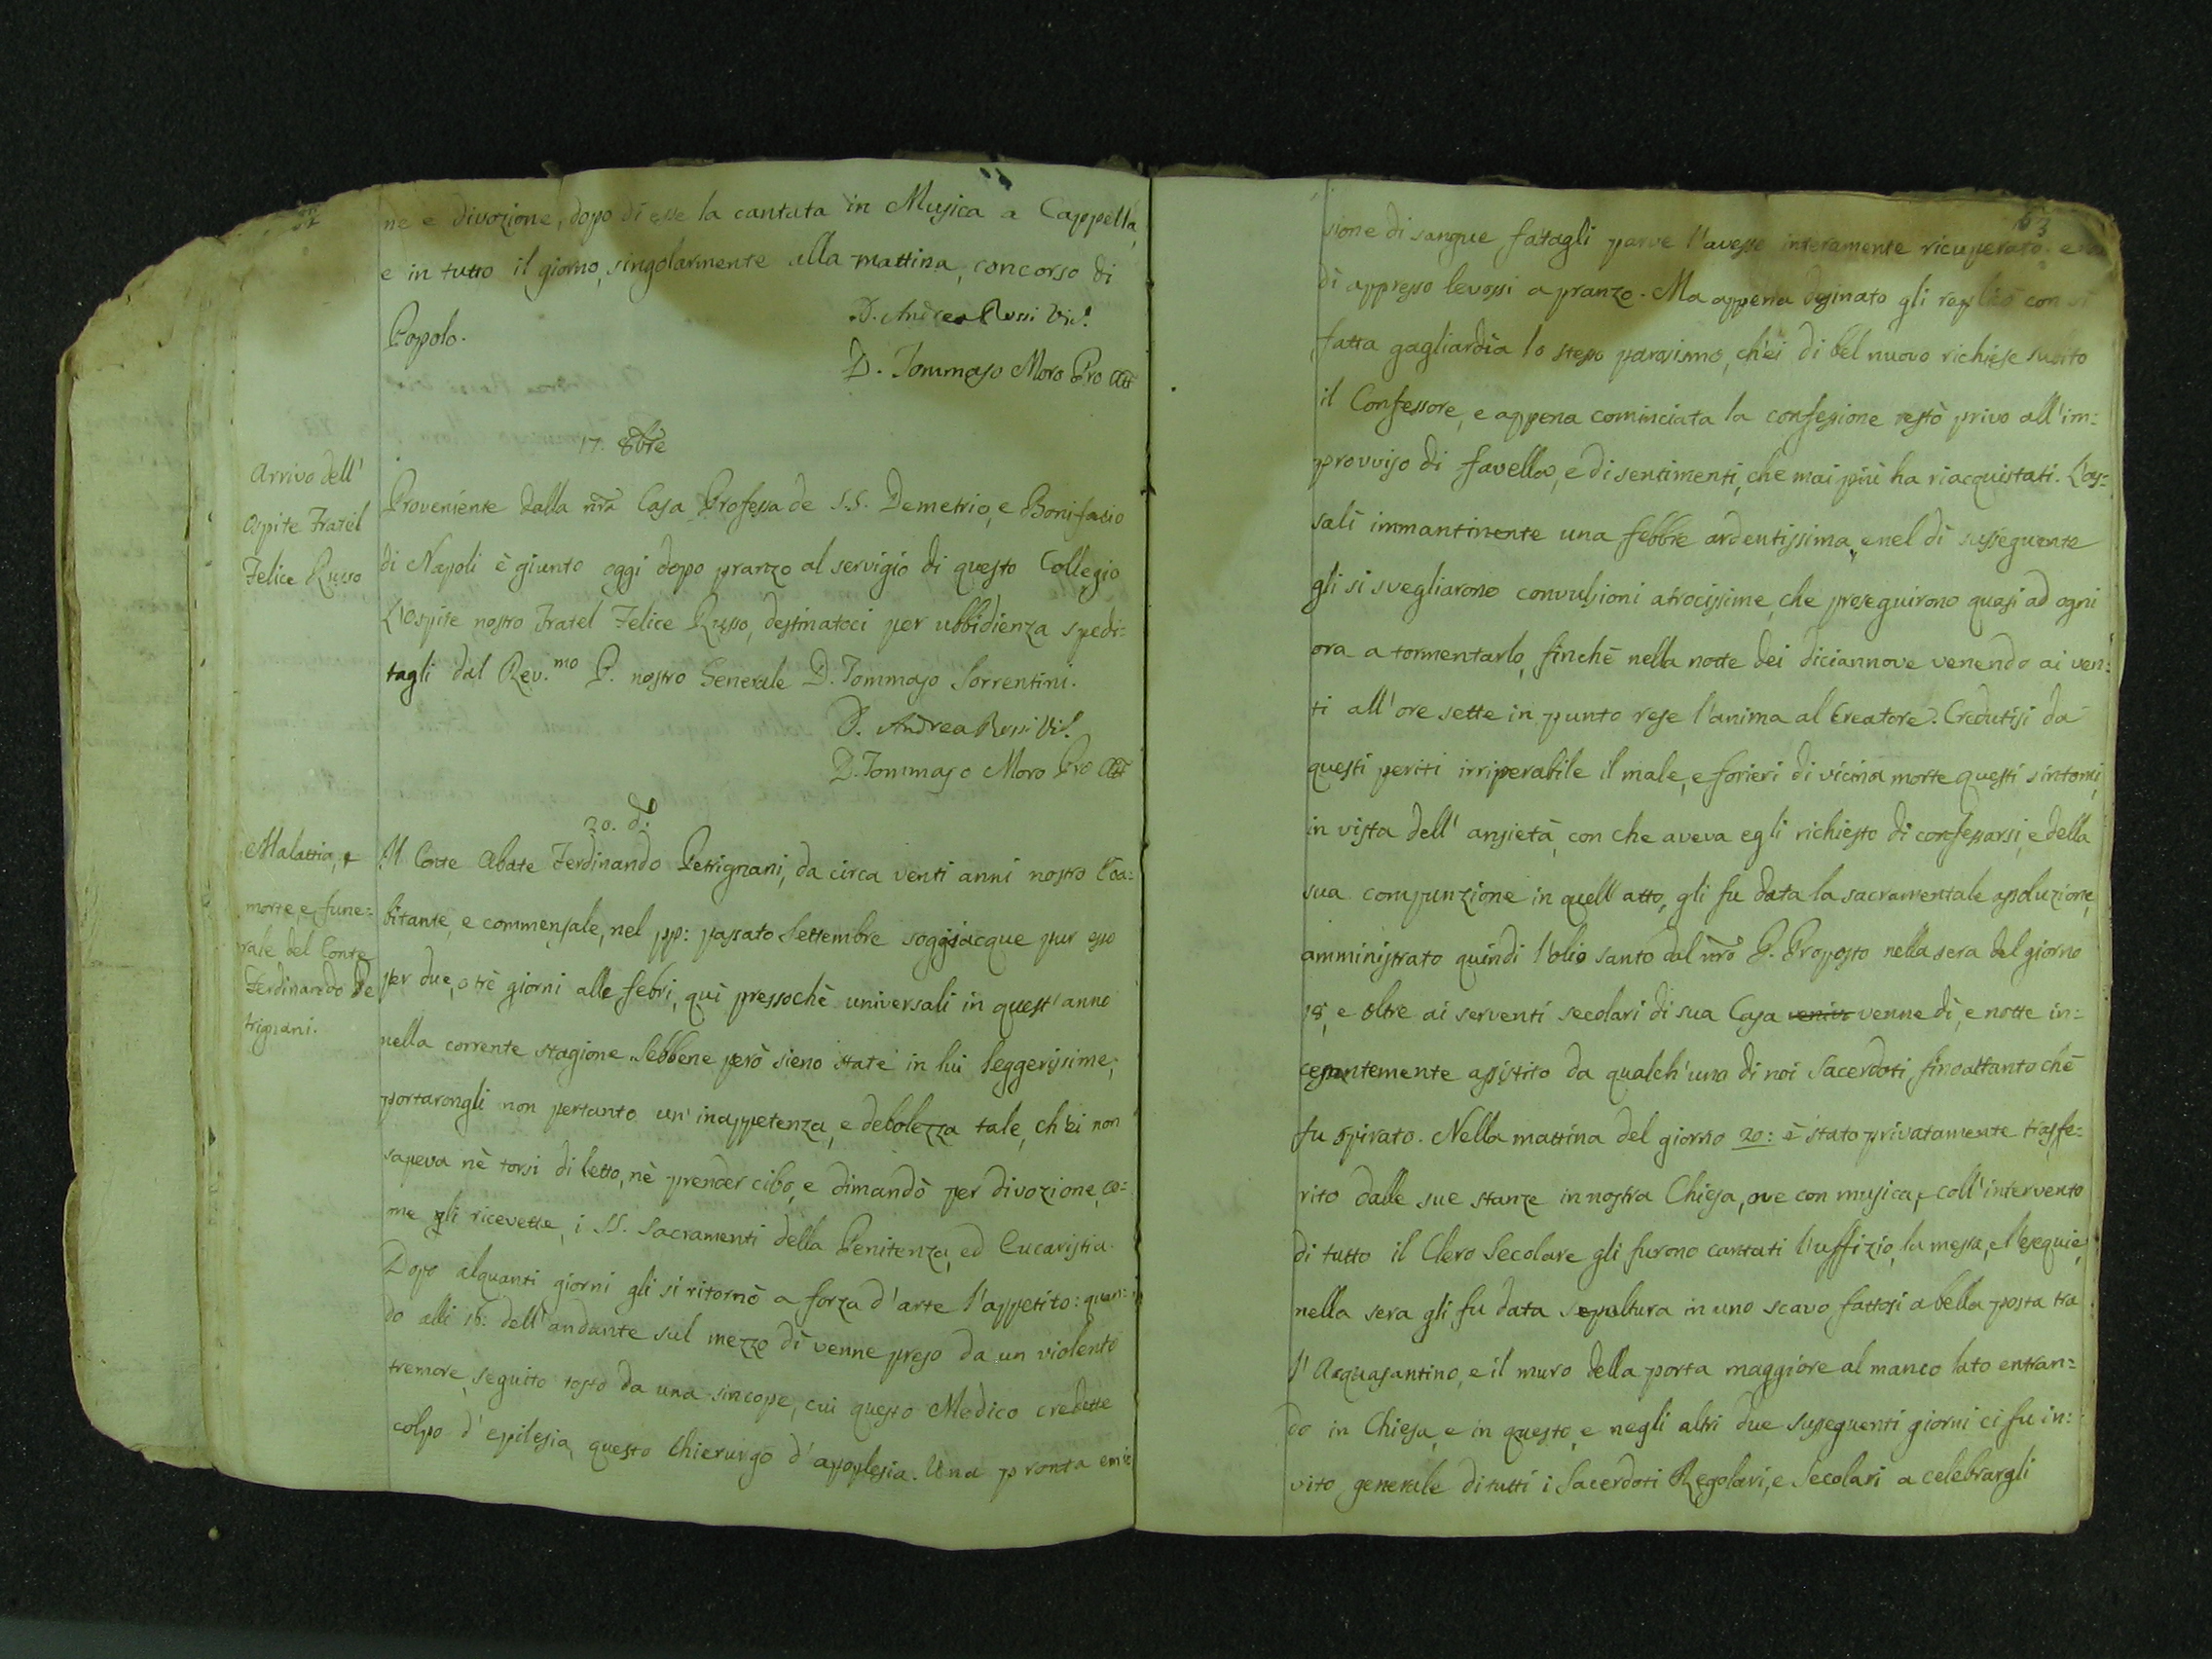 52
ne e divozione, dopo di esse la cantata in Musica a Cappella,
e in tutto il giorno, singolarmente alla mattina, concorso di
Popolo.
D. Andrea Rossi Vic.
D. Tommaso Moro Pro Att
17. 8bre
Arrivo dell'
Ospite Fratel
Felice Russo
Proveniente dalla nrã Casa Professa de S.S. Demetrio, e Bonifacio
di Napoli è giunto oggi dopo pranzo al servigio di questo Collegio
L'Ospite nostro Fratel Felice Russo, destinatoci per ubbidienza spedi=
tagli dal Rev.mo P. nostro Generale D. Tommaso Sorrentini.
D. Andrea Rossi Vic.
D. Tommaso Moro Pro Att
20. d.o
Malattia, e
morte, e fune=
rale del Conte
Ferdinando Pe
trignani.
Il Conte Abate Ferdinando Petrignani, da circa venti anni nostro Coa=
bitante, e commensale, nel pp: passato Settembre soggiacque pur esso
per due, o trè giorni alle febri, quì pressochè universali in quest'anno
nella corrente stagione. Sebbene però sieno state in lui leggerissime;
portarongli non pertanto un'inappetenza, e debolezza tale, ch'ei non
sapeva nè torsi di letto, nè prender cibo, e dimandò per divozione, co=
me gli ricevette, i SS. Sacramenti della Penitenza, ed Eucaristia.
Dopo alquanti giorni gli si ritornò a forza d'arte l'appetito: quan=
do alli 16: dell'andante sul mezzo dì venne preso da un violento
tremore, seguito tosto da una sincope, cui questo Medico credette
colpo d'epilesia, questo Chierurgo d'apoplesia. Una pronta emis
53
sione di sangue fatagli parve l'avesse interamente ricuperato. e
dì appresso levossi a pranzo. Ma appena desinato gli replicò con sì
fatta gagliardia lo stesso parosismo, ch'ei di bel nuovo richiese subito
il Confessore, e appena cominciata la confessione restò privo all'im=
provviso di favella, e di sentimenti, che mai più ha riacquistati. L'as=
salì immantinente una febbre ardentissima, e nel dì susseguente
gli si svegliarono convulsioni atrocissime, che proseguirono quasi ad ogni
ora a tormentarlo, finchè nella notte dei diciannove venendo ai ven=
ti all'ore sette in punto rese l'anima al Creatore. Credutisi da
questi periti irriperabile il male, e forieri di vicina morte questi sintomi,
in vista dell'ansietà, con che aveva egli richiesto di confessarsi, e della
sua compunzione in quell'atto, gli fu data la sacramentale assoluzione,
amministrato quindi l'olio santo dal nrõ P. Proposto nella sera del giorno
18, e oltre ai serventi secolari di sua Casa veniva venne dì, e notte in=
cessantemente assistito da qualch'uno di noi Sacerdoti finoattanto chè
fu spirato. Nella mattina del giorno 20: è stato privatamente trasfe=
rito dalle sue stanze in nostra Chiesa, ove con musica, e coll'intervento
di tutto il Clero Secolare gli furono cantati l'uffizio, la messa, e l'esequie,
nella sera gli fu data sepultura in uno scavo fattosi a bella posta tra
l'Acquasantino, e il muro della porta maggiore al manco lato entran=
do in Chiesa, e in questo, e negli altri due susseguenti giorni ci fu in=
vito generale di tutti i Sacerdoti Regolari, e Secolari a celebrargli